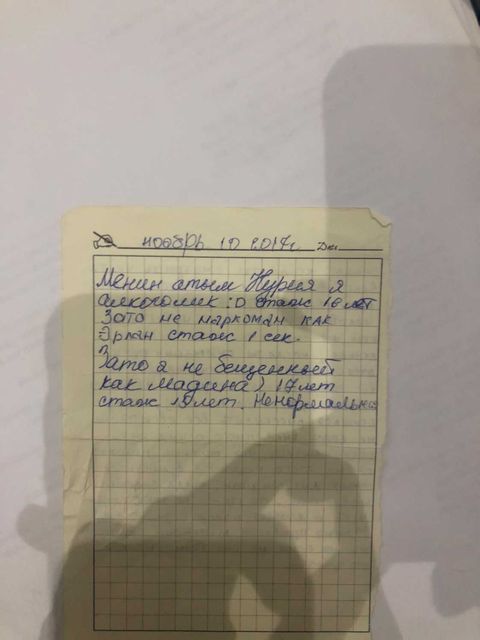 ноябрь 10 2017г. Dat
Менин атым Нурия я
алкоголик :D стаж 16 лет
Зато не наркоман как
Эрлан стаж 1 сек.
Зато я не бешенный
как Мадина) 17 лет
стаж 15 лет. Ненормальная